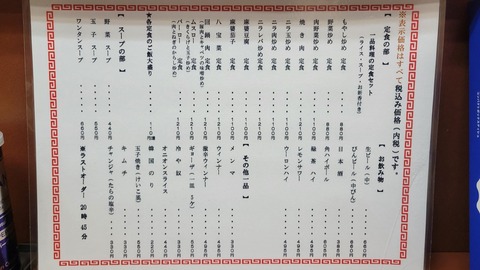 ※表示価格はすべて税込み価格(内税)です。
【 定食の部 】
一品料理の定食セット
(ライス・スープ・お新香付き)
もやし炒め 定食・・・・980円
野菜炒め 定食・・・・980円
肉野菜炒め 定食・・・・1100円
焼き肉 定食・・・・1210円
ニラ玉炒め 定食・・・・1100円
ニラ肉炒め 定食・・・・1100円
ニラレバ炒め 定食・・・・1210円
麻婆豆腐 定食・・・・1100円
麻婆茄子 定食・・・・1100円
八宝菜 定食・・・・1210円
回鍋肉 定食・・・・1210円
(豚肉とキャベツの味噌炒め)
ムースロー 定食・・・・1210円
(きくらげと玉子炒め)
バーロー 定食・・・・1210円
(肉とねぎのからし炒め)
★各定食のご飯大盛り・・・・110円増
【 スープの部 】
野菜スープ・・・・440円
玉子スープ・・・・550円
ワンタンスープ・・・・660円
【 お飲み物 】
生ビール(中)・・・・
びんビール(中びん)・・・・
日本酒・・・・
角ハイボール・・・・
緑茶ハイ・・・・495円
レモンサワー・・・・495円
ウーロンハイ・・・・495円
【 その他一品 】
メンマ・・・・330円
ウインナー・・・・495円
激辛ウインナー・・・・495円
ギョーザ(一皿5ケ)・・・・550円
冷や奴・・・・330円
オニオンスライス・・・・440円
韓国のり・・・・220円
玉子焼き(けいこ風)・・・・550円
キムチ・・・・330円
チャンジャ(たらの塩辛)・・・・
※ラストオーダー 20時45分